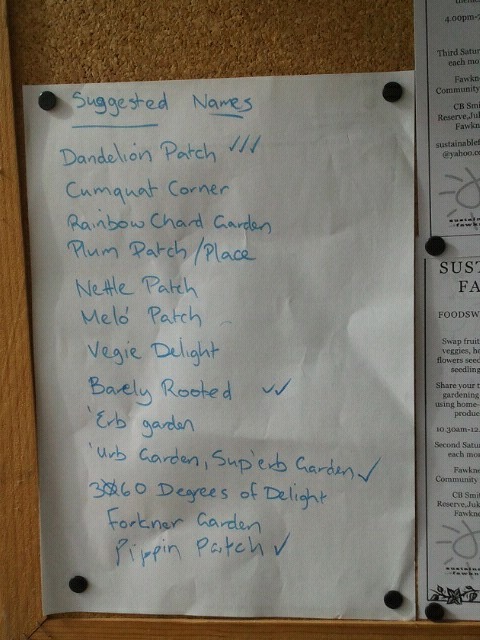 Suggested Names
Dandelion Patch ✓✓✓
Cumquat Corner
Rainbow Chard Garden
Plum Patch/Place
Nettle Patch
Melo Patch
Vegie Delight
Barely Rooted ✓✓
'Erb garden
'Urb Garden, Sup'erb Garden ✓
3060 Degrees of Delight
Forkner Garden
Pippin Patch ✓
4.00pm-
Third Satur
each mo
Fawkn
Community
CB Smi
Reserve, Juk
Fawkn
sustainablef
@yahoo.c
SUST
FA
FOODSW
Swap fruit
veggies, h
flowers seed
seedling
Share your t
gardening
using home-
produc
10.30am-12.
Second Satur
each mo
Fawkne
Community
CB Smit
Reserve, Juk
Fawkne